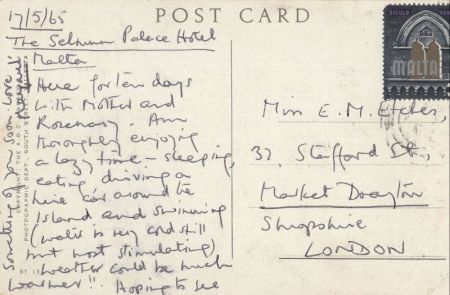 POST CARD
17/5/65
The Selmun Palace Hotel
Malta
Here for ten days
with Mother and
Rosemary. Am
thoroughly enjoying
a lazy time - sleeping,
eating, driving a
hire car around the
Island and swimming
(water is very cold still
but most stimulating)
weather could be much
warmer!! Hoping to see
something of you soon. Love
COPYRIGHT THE A.B.C.
PHOTOGRAPHIC DEPT. SOUTH STREET
RT 11
SICULO NOR
MALTA
Miss E. M.
32, Stafford St.,
Market Drayton
Shropshire
LONDON